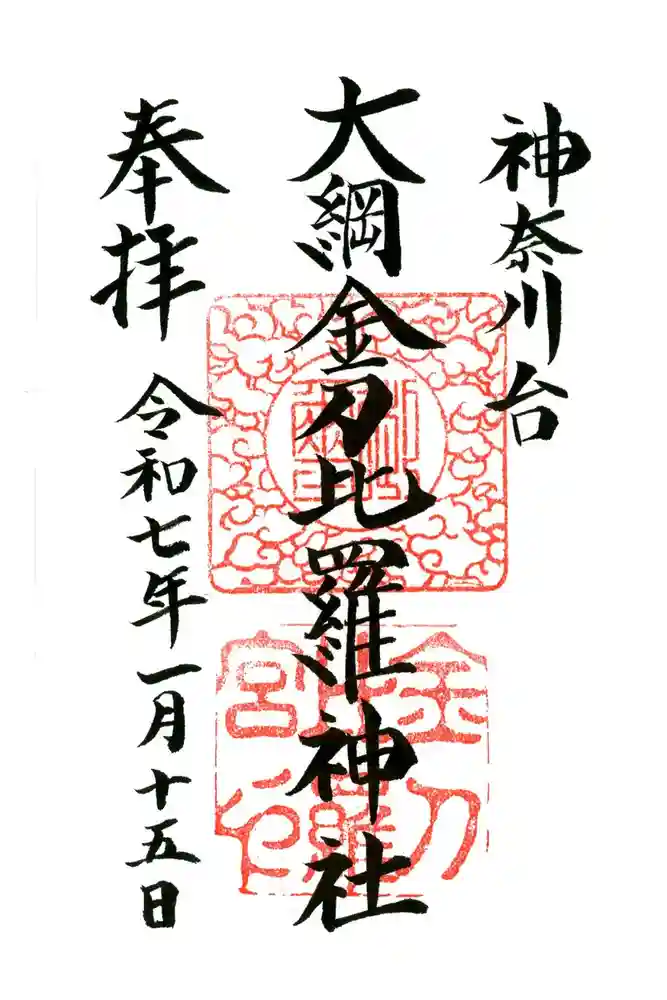 神奈川台
大綱金刀比羅神社
奉拝
令和七年一月十五日
金刀
比羅
宮